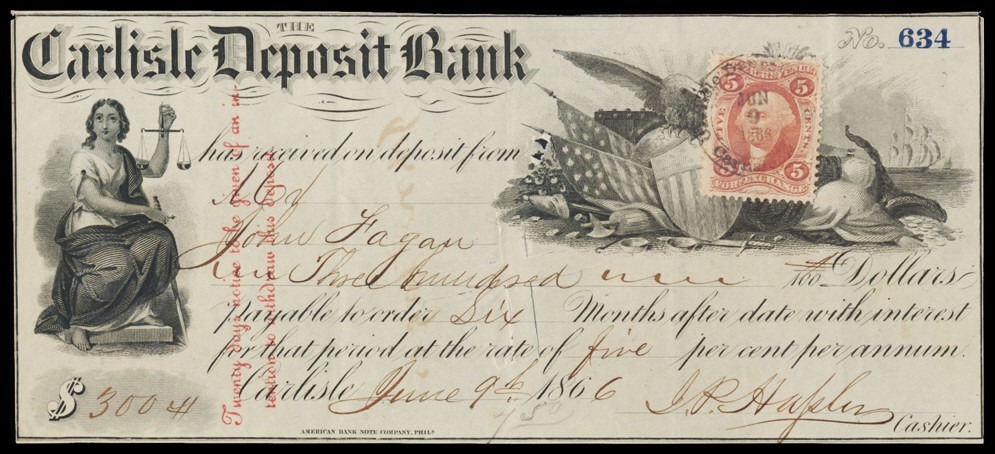 THE
Carlisle Deposit Bank
No. 634
has received on deposit from
John Fagan
Three hundred Dollars
Payable to order Six Months after date with interest
for that period at the rate of five per cent per annum.
Carlisle June 9th 1866
Cashier.
$ 300
AMERICAN BANK NOTE COMPANY, PHILA
Twenty days notice to be given of an in-
tention to withdraw this deposit
5 5
FIVE CENTS
FOR. EXCHANGE
5 5
JUN
9